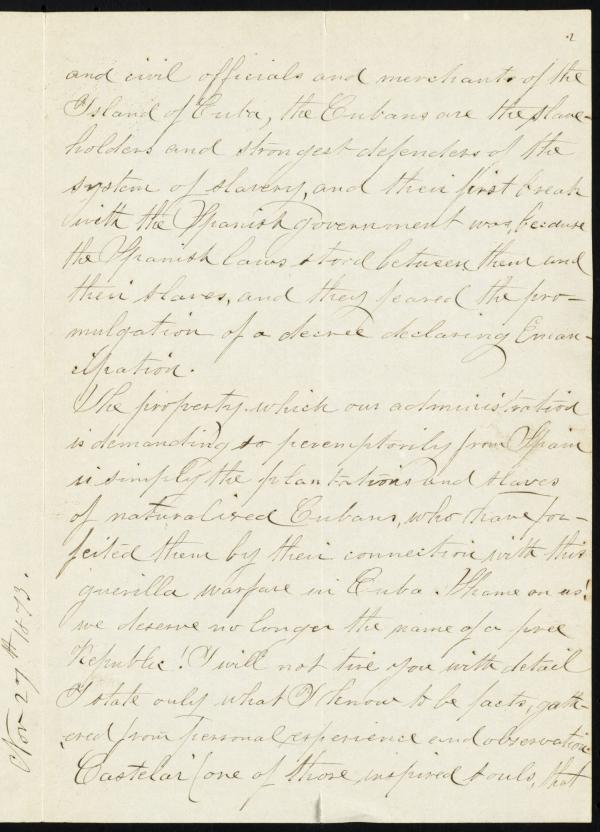 2
and civil officials and merchants of the
Island of Cuba, the Cubans are the slave-
holders and strongest defenders of the
system of slavery, and their first break
with the Spanish government was, because
the Spanish laws stood between them and
their slaves, and they feared the pro-
mulgation of a decree declaring Eman-
cipation.
The property which our administration
is demanding so peremptorily from Spain
is simply the plantations and slaves
of naturalized Cubans, who have for-
feited them by their connection with this
guerilla warfare in Cuba. Shame on us!
we deserve no longer the name of a free
Republic! I will not tire you with detail
I state only what I know to be facts, gath-
ered from personal experience and observation.
Castelar (one of those inspired souls, that
Nov 27th 1873.